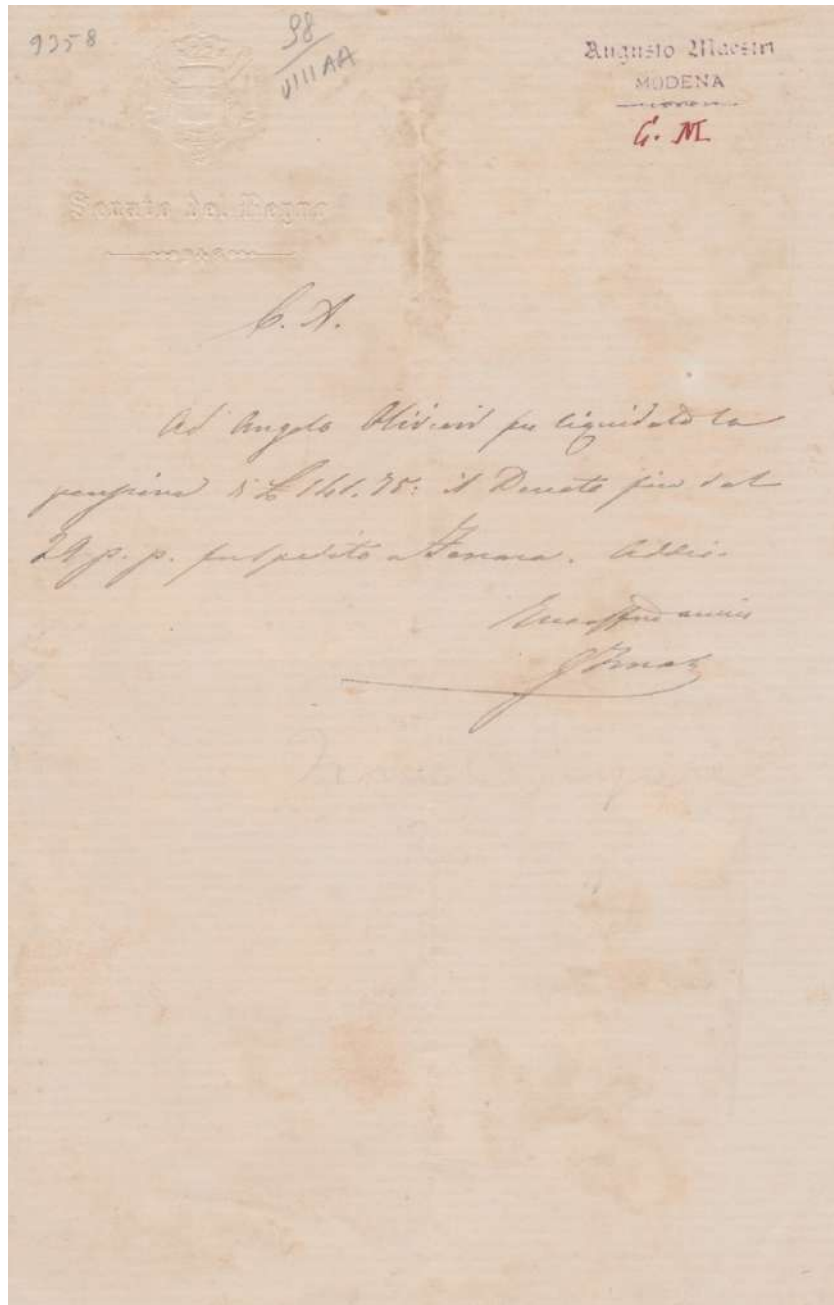 9358
98
VIII AA
Augusto Maestri
MODENA
G. M.
Senato del Regno
C. A.
Ad Angelo Olivieri fu liquidata la
pensione di £ 141.75: il Decreto fin dal
29 p. p. fu spedito a Ferrara. Addio.